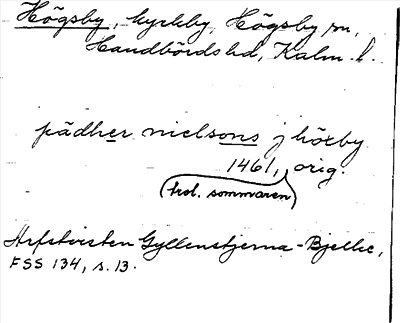 Högsby, kyrkby, Högsby sn,
Handbörds hd, Kalm. l.
pädher nielsons j höxby
1461, orig.
(trol. sommaren)
Arfstvisten Gyllenstjerna-Bjelke,
FSS 134, s. 13.